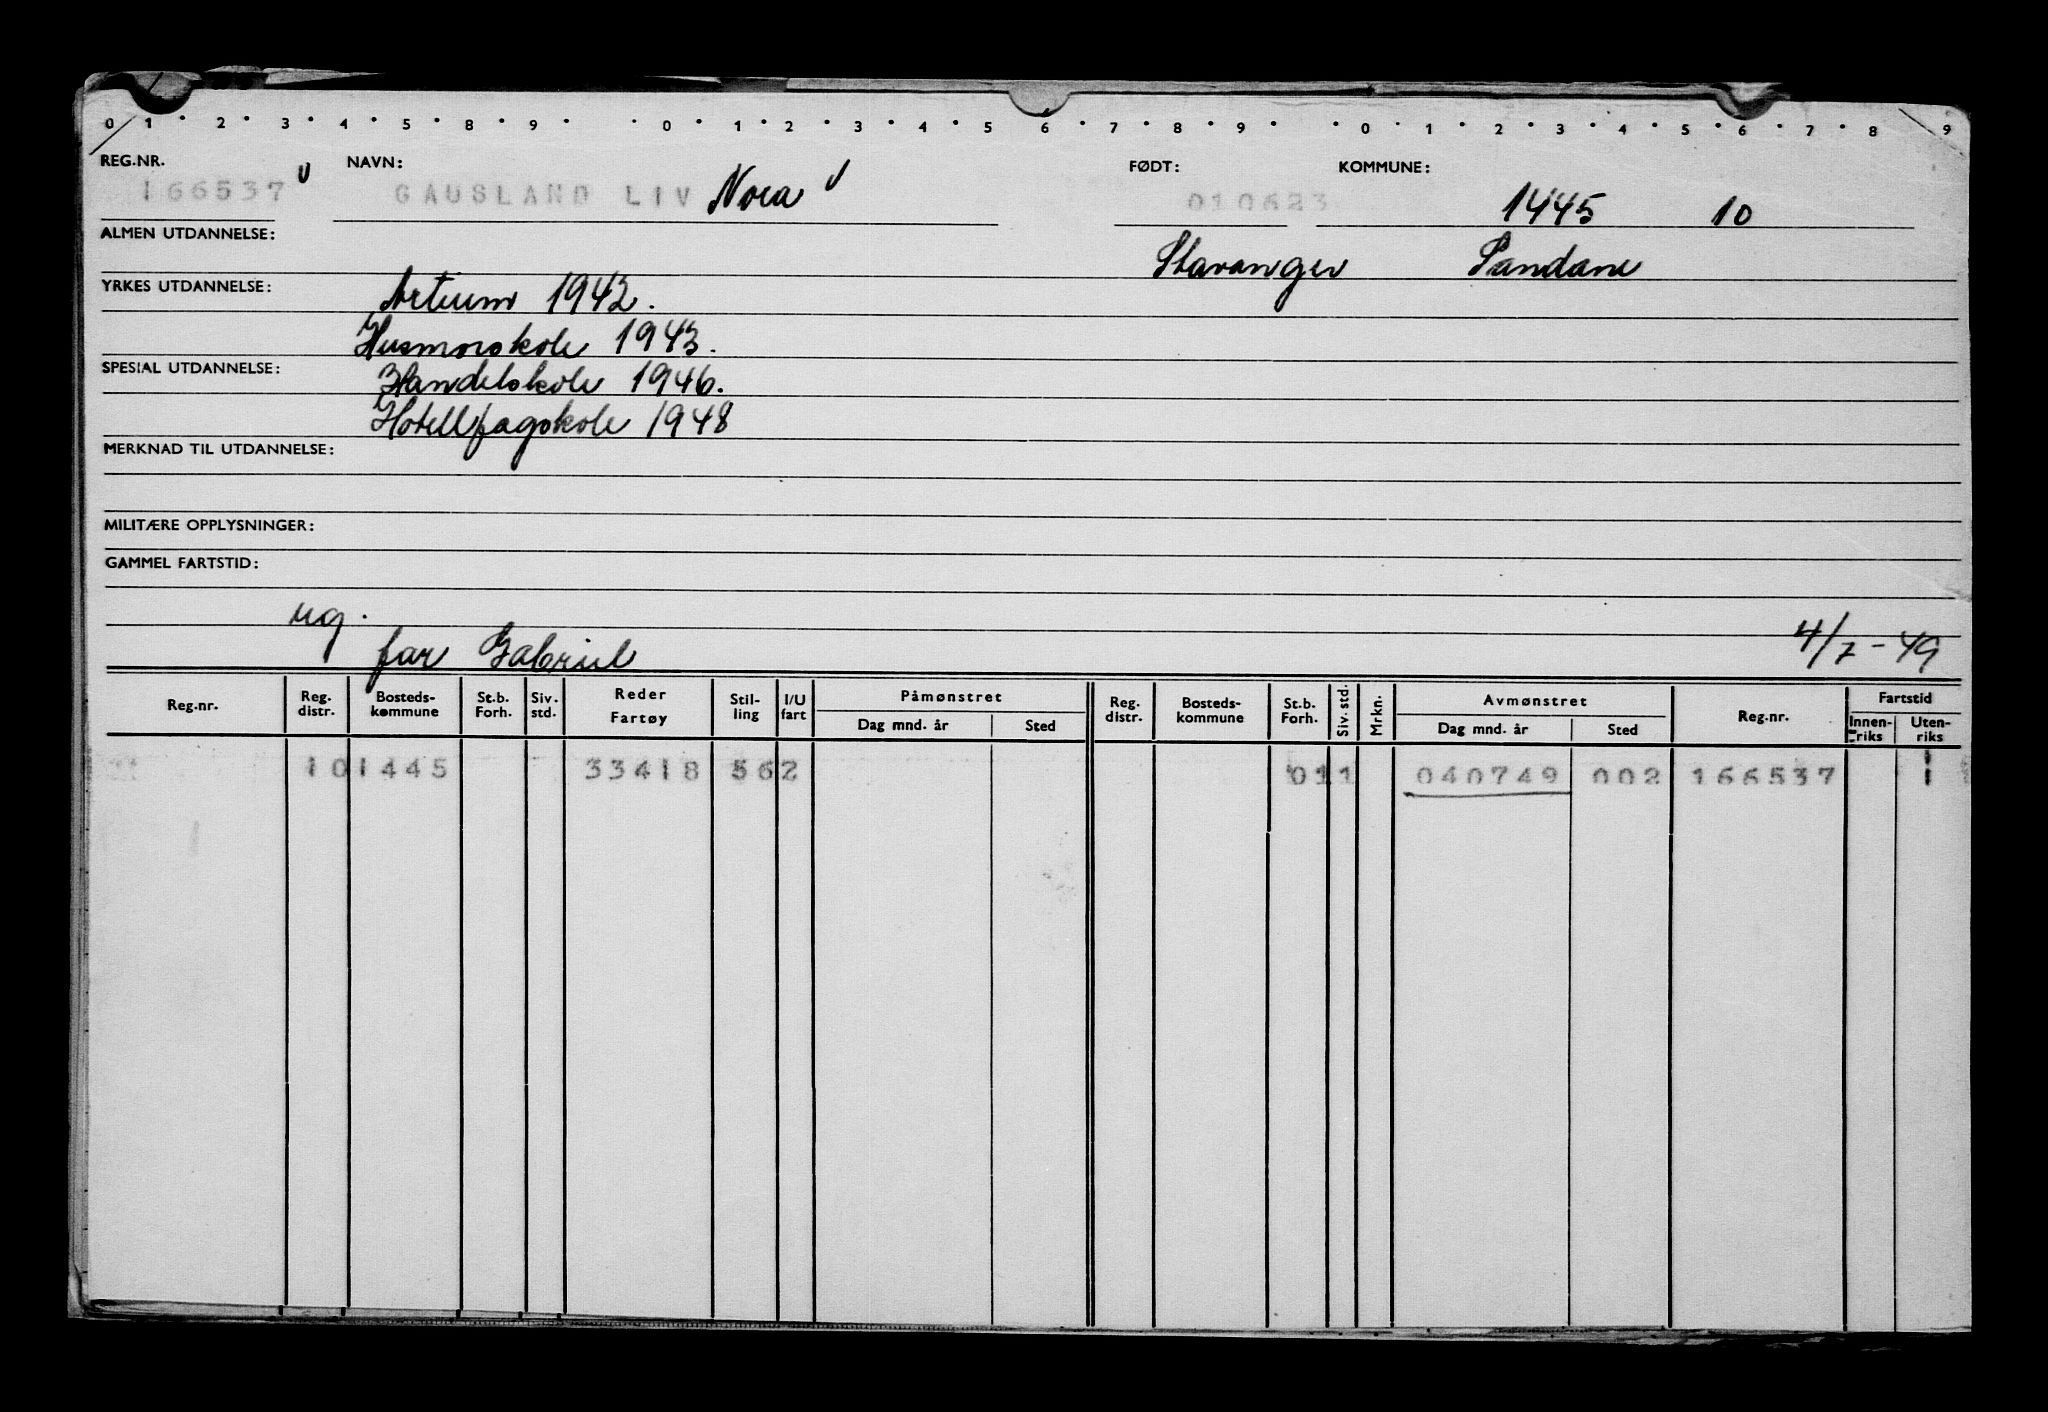 0 1 2 3 4 5 8 9 0 1 2 3 4 5 6 7 8 9 0 1 2 3 4 5 6 7 8 9
REG.NR. NAVN: FØDT: KOMMUNE:
166537 v GAUSLAND LIV Nora v 010623 1445 10
ALMEN UTDANNELSE: Stavanger Sandane
YRKES UTDANNELSE: Artium 1942.
Husmorskole 1943.
SPESIAL UTDANNELSE: Handelskole 1946.
Hotellfagskole 1948
MERKNAD TIL UTDANNELSE:
MILITÆRE OPPLYSNINGER:
GAMMEL FARTSTID:
ug.
far Gabriel 4/7-49
Reg.nr. Reg. distr. Bosteds-kommune St.b. Forh. Siv. std. Reder Fartøy Stil-ling I/U fart Påmønstret Dag mnd. år Sted Reg. distr. Bosteds-kommune St.b. Forh. Siv. std. Mrkn. Avmønstret Dag mnd. år Sted Reg.nr. Fartstid Innen-riks Uten-riks
10 1445 33418 562 011 040749 002 166537 1